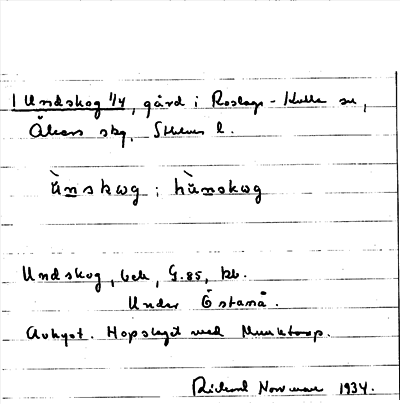 1 Undskog 1/4, gård i Roslags-Kulla sn,
Åkers skg, Sthlms l.
ùnskog ; hùnskog
Undskog, beb, G.85, kb.
Under Östanå.
Avhyst. Hopslaget med Munktorp.
Rickard Norrman 1934.